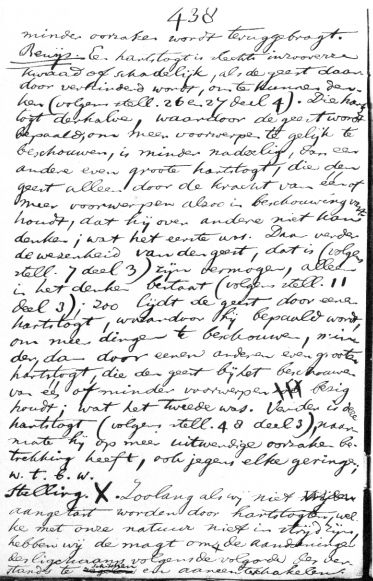 438
minder oorzaken wordt teruggebragt.
Bewijs. Een hartstogt is slechts inzooverre
kwaad of schadelijk, als de geest daar
door verhinderd wordt, om te kunnen den-
ken (volgens stell. 26 en 27 deel 4). Die harts
togt derhalve, waardoor de geest wordt
bepaald, om meer voorwerpen te gelijk te
beschouwen, is minder nadeelig, dan een
andere even groote hartstogt, die den
geest alleen door de kracht van één of
meer voorwerpen alzoo in beschouwing
houdt, dat hij over andere niet kan
denken; wat het eerste was. Daar verder
de wezenheid van den geest, dat is (volgens
stell. 7 deel 3) zijn vermogen, alleen
in het denken bestaat (volgens stell: 11
deel 3); zoo lijdt de geest door eenen
hartstogt, waardoor hij bepaald wordt,
om meer dingen te beschouwen, min
der, dan door eenen anderen even grooten
hartstogt, die den geest bij het beschouwen
van één of minder voorwerpen bezig
houdt; wat het tweede was. Verder is deze
hartstogt (volgens stell. 48 deel 3), naar
mate hij op meer uitwendige oorzaken be-
trekking heeft, ook jegens elke geringer;
w. t. b. w.
Stelling. X. Zoolang als wij niet
aangetast worden door hartstogten, wel
ke met onze natuur niet in strijd zijn,
hebben wij de magt om de aandoeningen
des ligchaams volgens de volgorde des ver
stands te een aaneenteschakelen